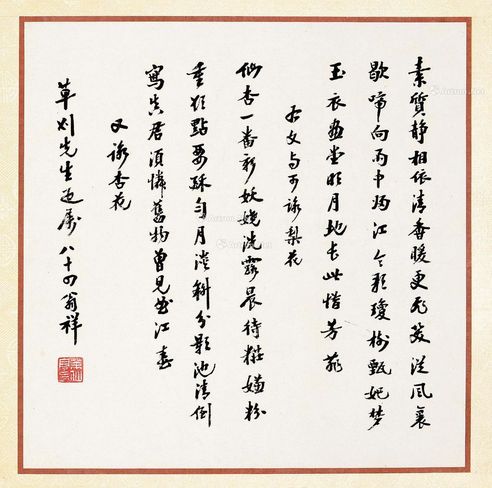 素質静相依清香暖更飛笑從風裏
歇啼向雨中歸江令歌瓊樹甄妃梦
玉衣畫堂明月地长此惜芳菲
右文与可詠梨花
仙杏一番新妖嬈洗露晨待粧嫌粉
重欲點要酥匀月淡斜分影池清倒
寫真君須憐舊物曾見曲江春
又詠杏花
草刈先生正属 八十四翁祥